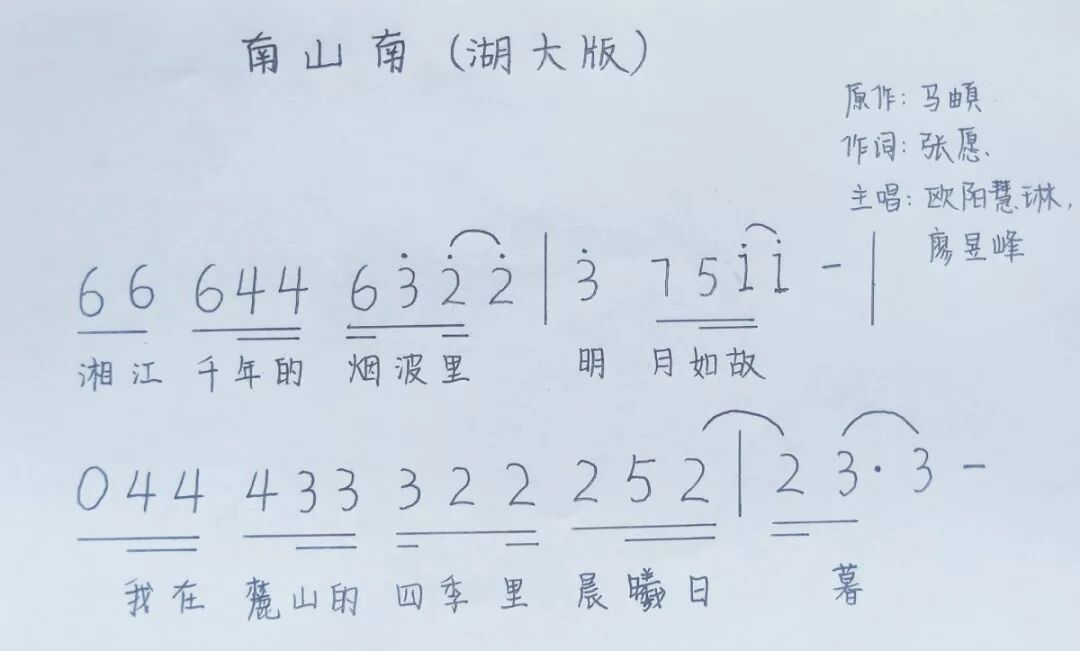 南山南(湖大版)
原作:马頔
作词:张愿.
主唱:欧阳慧琳,
廖昱峰
66 644 63̇2̇2̇ | 3̇ 751̇1̇ - |
湘江 千年的 烟波里 明 月如故
044 433 322 252 | 23· 3 -
我在 麓山的 四季里 晨曦日 暮